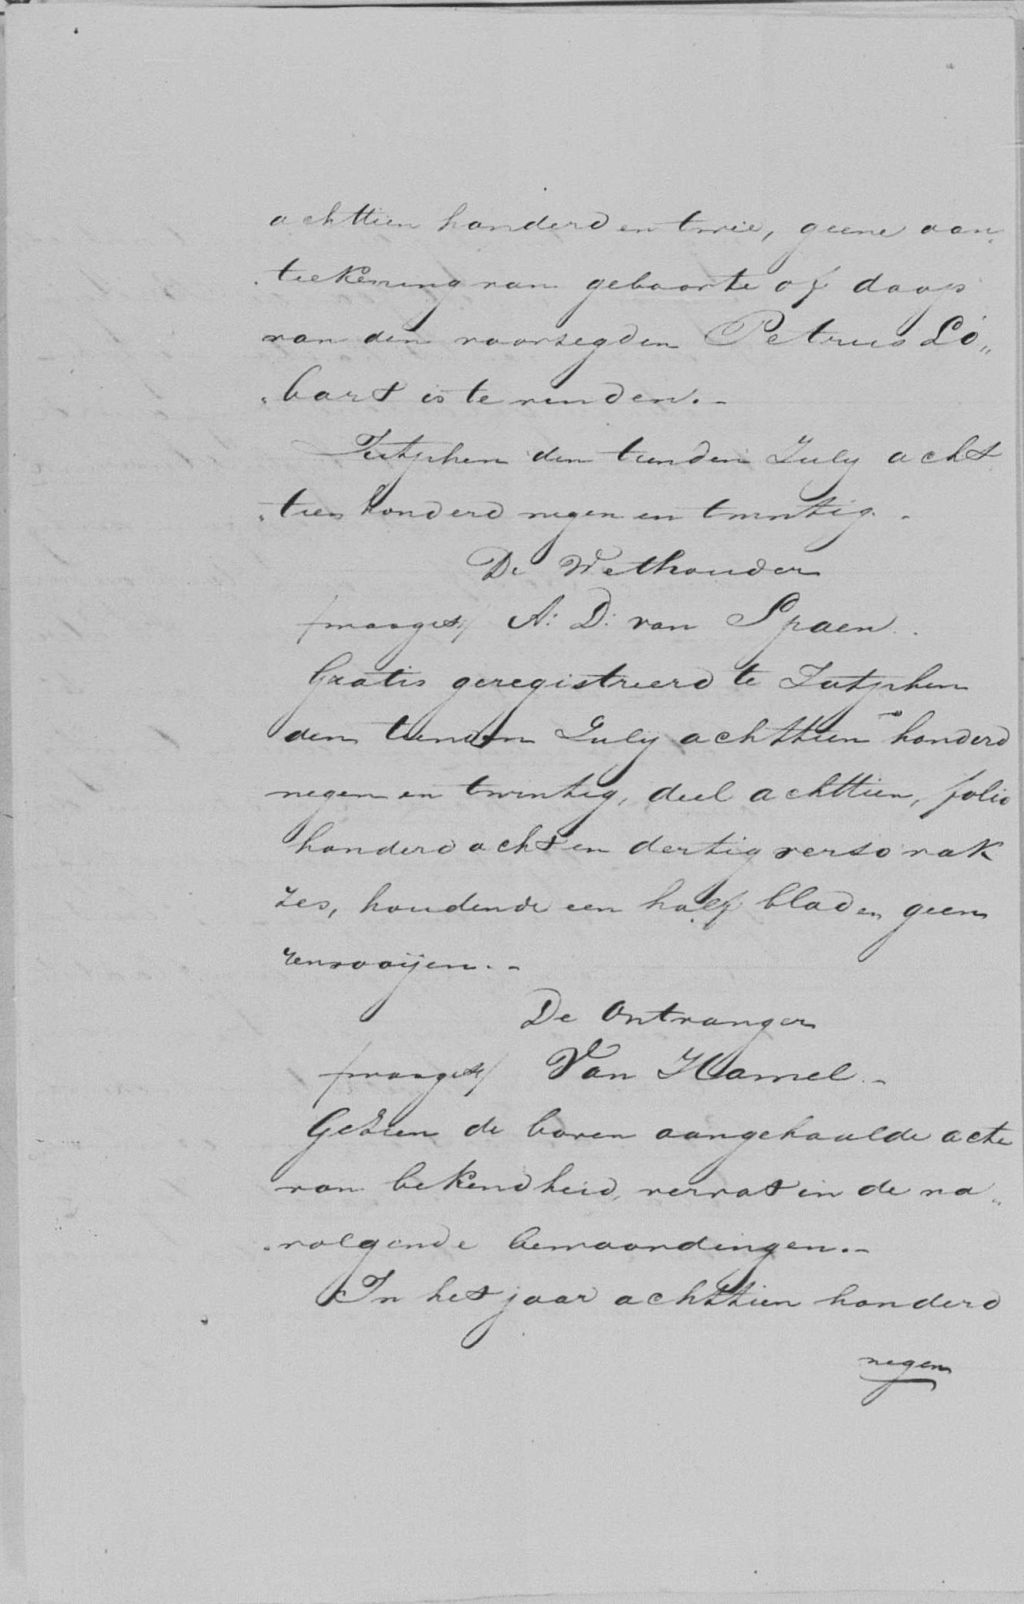 achttien honderd en twee, geene aan„
„teekening van geboorte of doop
van den voorzegden Petrus Lo„
„bart is te vinden.-
Zutphen den tienden July acht
„tien honderd negen en twintig.-
De Wethouder
/waargt/ A: D: van Spaen.
Gratis geregistreerd te Zutphen
den tienden July achttien honderd
negen en twintig, deel achttien, folio
honderd acht en dertig verso vak
zes, houdende een half blad en geen
renvooijen.-
De Ontvanger
/waargt/ Van Hamel.-
Gezien de boven aangehaalde acte
van bekendheid, vervat in de na„
„volgende bewoordingen.-
In het jaar achttien honderd
negen